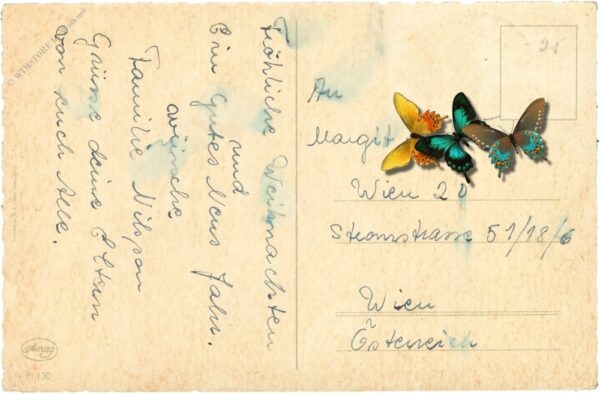 Fröhliche Weihnachten
und
Ein gutes Neus Jahr.
wünsche
Familie Nilson
Grüsse deine Eltern
von euch Alle.
An
Margit
Wien 20
Stromstrasse 51/18/6
Wien
Östereich
25
Amag